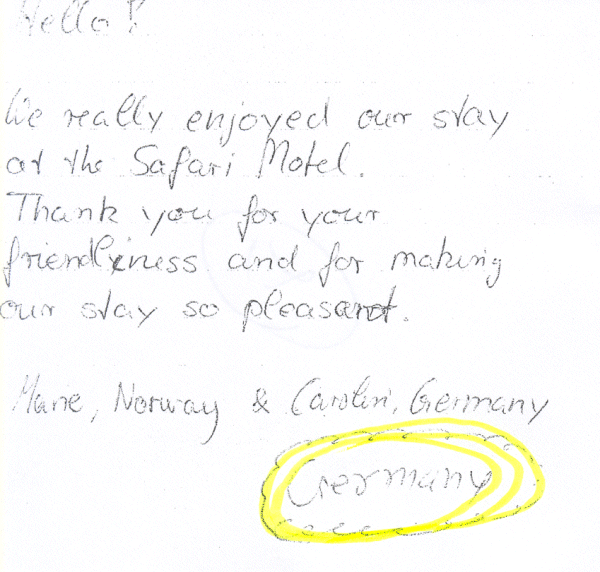 Hello!
We really enjoyed our stay
at the Safari Motel.
Thank you for your
friendliness and for making
our stay so pleasant.
Marie, Norway & Carolin, Germany
Germany